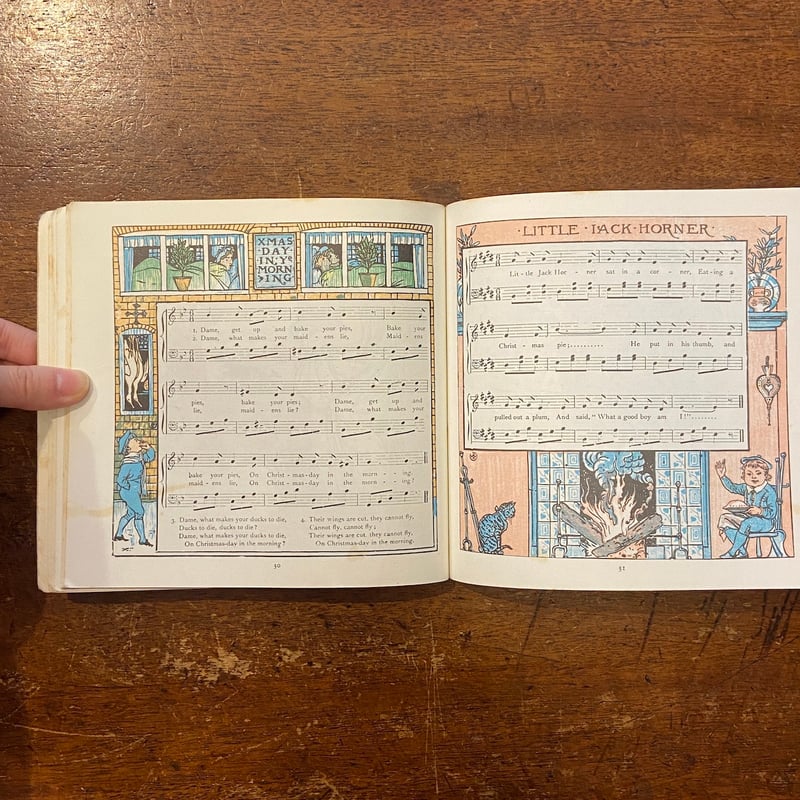 XMAS
DAY
IN·Yᵉ
MORN
ING
1. Dame, get up and bake your pies, Bake your
2. Dame, what makes your maid-ens lie, Maid-ens
pies, bake your pies; Dame, get up and
lie, maid-ens lie? Dame, what makes your
bake your pies, On Christ-mas-day in the morn-ing.
maid-ens lie, On Christ-mas-day in the morn-ing?
3. Dame, what makes your ducks to die,
Ducks to die, ducks to die?
Dame, what makes your ducks to die,
On Christmas-day in the morning?
4. Their wings are cut, they cannot fly,
Cannot fly, cannot fly;
Their wings are cut, they cannot fly,
On Christmas-day in the morning.
30
·LITTLE·JACK·HORNER·
Lit-tle Jack Hor-ner sat in a cor-ner, Eat-ing a
Christ-mas pie;.......... He put in his thumb, and
pulled out a plum, And said, "What a good boy am I!"........
31